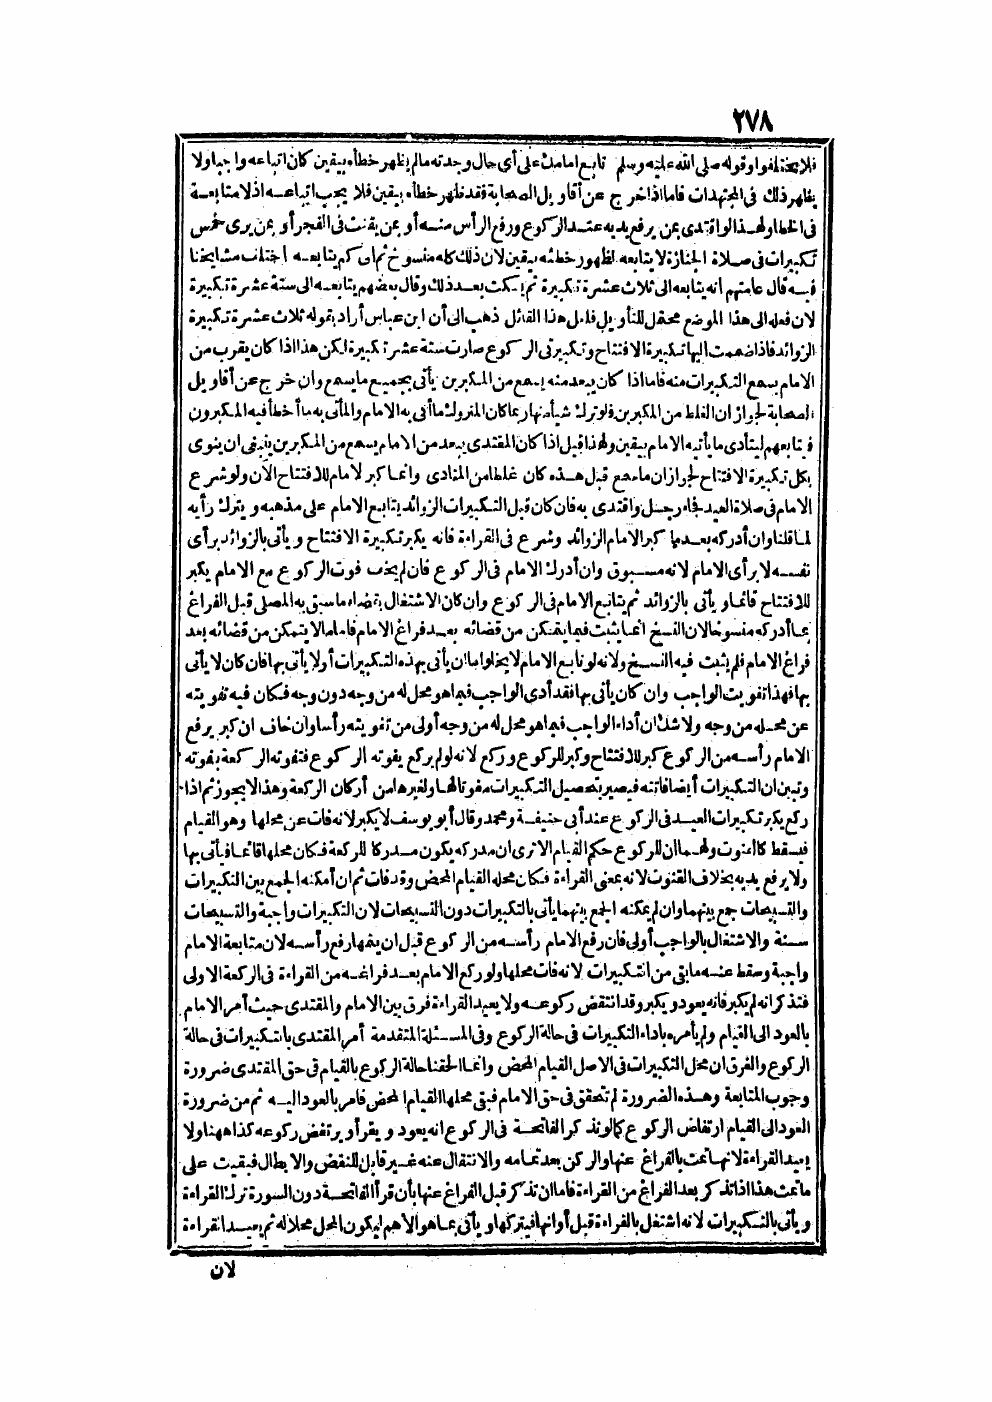 ٢٧٨
فلا تختلفوا وقوله صلى الله عليه وسلم تابع امامك على أى حال وجدته مالم يظهر خطأه بيقين كان اتباعه واجبا ولا
يظهر ذلك فى المجتهدات فاما اذا خرج عن أقاويل الصحابة فقد ظهر خطأه بيقين فلا يجب اتباعه اذ لا متابعة
فى الخطا ولهذا لو اقتدى بمن يرفع يديه عند الركوع ورفع الرأس منه أو بمن يقنت فى الفجر أو بمن يرى خمس
تكبيرات فى صلاة الجنازة لا يتابعه لظهور خطئه بيقين لان ذلك كله منسوخ ثم الى كم يتابعه اختلف مشايخنا
فيه قال عامتهم انه يتابعه الى ثلاث عشرة تكبيرة ثم يسكت بعد ذلك وقال بعضهم يتابعه الى ستة عشرة تكبيرة
لان فعله الى هذا الموضع محتمل للتأويل فلعل هذا القائل ذهب الى أن ابن عباس أراد بقوله ثلاث عشرة تكبيرة
الزوائد فاذا ضممت اليها تكبيرة الافتتاح وتكبيرتى الركوع صارت ستة عشر تكبيرة لكن هذا اذا كان يقرب من
الامام يسمع التكبيرات منه فاما اذا كان يبعد منه يسمع من المكبرين يأتى بجميع ما يسمع وان خرج عن أقاويل
الصحابة لجواز ان الغلط من المكبرين فلو ترك شيأ منها ربما كان المتروك ما أتى به الامام والمأتى به ما أخطأ فيه المكبرون
فيتابعهم ليتأدى ما يأتيه الامام بيقين ولهذا قيل اذا كان المقتدى يبعد من الامام يسمع من المكبرين ينبغى ان ينوى
بكل تكبيرة الافتتاح لجواز ان ما سمع قبل هذه كان غلطا من المنادى وانما كبر الامام للافتتاح الآن ولو شرع
الامام فى صلاة العيد فجاء رجل واقتدى به فان كان قبل التكبيرات الزوائد يتابع الامام على مذهبه ويترك رأيه
لما قلنا وان أدركه بعد ما كبر الامام الزوائد وشرع فى القراءة فانه يكبر تكبيرة الافتتاح ويأتى بالزوائد برأى
نفسه لا برأى الامام لانه مسبوق وان أدرك الامام فى الركوع فان لم يخف فوت الركوع مع الامام يكبر
للافتتاح قائما ويأتى بالزوائد ثم يتابع الامام فى الركوع وان كان الاشتغال بقضاء ما سبق به المصلى قبل الفراغ
بما أدركه منسوخا لان النسخ انما يثبت فيما يتمكن من قضائه بعد فراغ الامام فاما ما لا يتمكن من قضائه بعد
فراغ الامام فلم يثبت فيه النسخ ولانه لو تابع الامام لا يخلو اما ان يأتى بهذه التكبيرات أو لا يأتى بها فان كان لا يأتى
بها فهذا تفويت الواجب وان كان يأتى بها فقد أدى الواجب فيما هو محل له من وجه دون وجه فكان فيه تفويته
عن محله من وجه ولا شك ان أداء الواجب فيما هو محل له من وجه أولى من تفويته رأسا وان خاف ان كبر يرفع
الامام رأسه من الركوع كبر للافتتاح وكبر للركوع وركع لانه لو لم يركع يفوته الركوع فتفوته الركعة بفوته
وتبين ان التكبيرات أيضا فاتته فيصير بتحصيل التكبيرات مفوتا لها ولغيرها من أركان الركعة وهذا لا يجوز ثم اذا
ركع يكبر تكبيرات العيد فى الركوع عند أبى حنيفة ومحمد وقال أبو يوسف لا يكبر لانه فات عن محلها وهو القيام
فيسقط كالقنوت ولهما ان للركوع حكم القيام الا ترى ان مدركه يكون مدركا للركعة فكان محلها قائما فيأتى بها
ولا يرفع يديه بخلاف القنوت لانه بمعنى القراءة فكان محله القيام المحض وقد فات ثم ان أمكنه الجمع بين التكبيرات
والتسبيحات جمع بينهما وان لم يمكنه الجمع بينهما يأتى بالتكبيرات دون التسبيحات لان التكبيرات واجبة والتسبيحات
سنة والاشتغال بالواجب أولى فان رفع الامام رأسه من الركوع قبل ان يتمها رفع رأسه لان متابعة الامام
واجبة وسقط عنه ما بقى من التكبيرات لانه فات محلها ولو ركع الامام بعد فراغه من القراءة فى الركعة الاولى
فتذكر انه لم يكبر فانه يعود ويكبر وقد انتقض ركوعه ولا يعيد القراءة فرق بين الامام والمقتدى حيث أمر الامام
بالعود الى القيام ولم يأمره باداء التكبيرات فى حالة الركوع وفى المسئلة المتقدمة أمر المقتدى بالتكبيرات فى حالة
الركوع والفرق ان محل التكبيرات فى الاصل القيام المحض وانما الحقنا حالة الركوع بالقيام فى حق المقتدى ضرورة
وجوب المتابعة وهذه الضرورة لم تتحقق فى حق الامام فبقى محلها القيام المحض فامر بالعود اليه ثم من ضرورة
العود الى القيام ارتفاض الركوع كما لو تذكر الفاتحة فى الركوع انه يعود ويقرأ ويرتفض ركوعه كذا ههنا ولا
يعيد القراءة لانها تمت بالفراغ عنها والركن بعد تمامه والانتقال عنه غير قابل للنقض والابطال فبقيت على
ما تمت هذا اذا تذكر بعد الفراغ من القراءة فاما ان تذكر قبل الفراغ عنها بأن قرأ الفاتحة دون السورة ترك القراءة
ويأتى بالتكبيرات لانه اشتغل بالقراءة قبل أوانها فيتركها ويأتى بما هو الاهم ليكون المحل محلا له ثم يعيد القراءة
لان